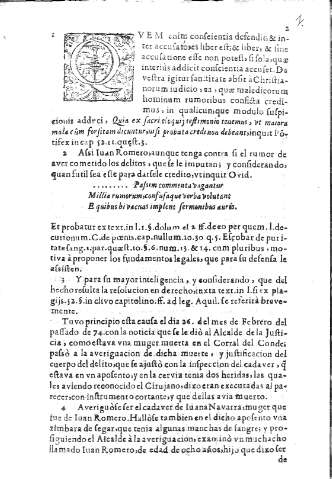 2
1 QVEM enim conscientia defendit, & in-
ter accusatores liber est; & liber, & sine
accusatione esse non potest, si sola, quæ
interius addicit conscientia accuset. De
vestra igitur sanctitate absit à Christia-
norum iudicio, ea, quæ maledicorum
hominum rumoribus conficta credi-
mus, in qualicunque modulo suspi-
cionis adduci, Quia ex sacri eloquij testimonio tenemus, ut maiora
mala cum forsitam dicuntur, nisi probata credenda debeant, inquit Põ-
tifex in cap. 52. 11. quæst. 3.
2 Assi Iuan Romero, aunque tenga contra si el rumor de
aver cometido los delitos, que se le imputan; y considerando,
quan futil sea este para darsele credito, vt inquit Ovid.
Passim commenta vagantur
Millia rumorum, confusaque verba volutant
E quibus hi vacuas implent sermonibus auris.
Et probatur ex text. in l. 1. §. dolum el 2. ff. de eo per quem, l. de-
curionum. C. de pœnis, cap. nullum. 10. 30. q. 5. Escobar de puri-
tate sing. 1. par. quæst. 10. §. 6. num. 13. & 14. cum pluribus, mo-
tiva à proponer los fundamentos legales, que para su defensa le
assisten.
3 Y para su mayor inteligencia, y considerando, que del
hecho resulta la resolucion en derecho, ex ta text. in l. si ex pla-
gijs. 52. §. in clivo capitolino. ff. ad leg. Aquil. se referirà breve-
mente.
Tuvo principio esta causa el dia 26. del mes de Febrero del
passado de 74. con la noticia que se le diò al Alcalde de la Justi-
cia, como estava vna muger muerta en el Corral del Conde;
passò à la averiguacion de dicha muerte, y justificacion del
cuerpo del delito, que se ajustò con la inspeccion del cadaver, q̃
estava en vn aposento; y en la cervis tenia dos heridas; las qua-
les aviendo reconocido el Cirujano; dixo eran executadas al pa-
recer; con instrumento cortante, y que dellas avia muerto.
4 Averiguòse ser el cadaver de Iuana Navarra; muger que
fue de Iuan Romero. Hallòse tambien en dicho aposento vna
zimbara de segar, que tenia algunas manchas de sangre; y pro-
siguiendo el Alcalde à la averiguacion; examinò vn muchacho
llamado Iuan Romero, de edad de ocho años, hijo que dixo ser
de